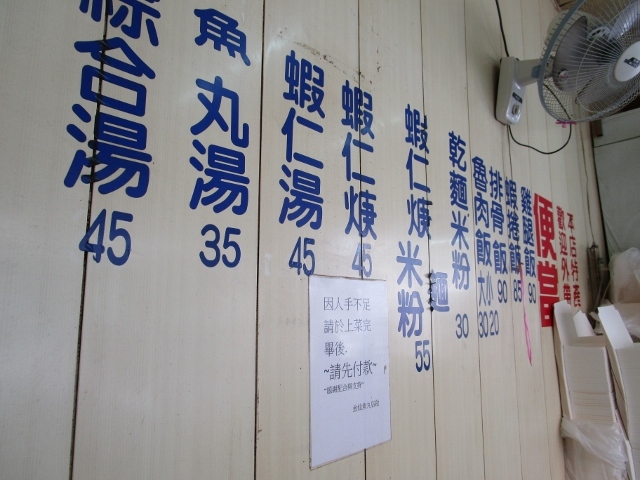 本店特產
歡迎外帶
便當
雞腿飯 90
蝦捲飯 85
排骨飯 90
魯肉飯 大30 小20
乾麵 米粉 30
蝦仁焿 米粉 麵 55
蝦仁焿 45
蝦仁湯 45
魚丸湯 35
綜合湯 45
因人手不足
請於上菜完
畢後.
~請先付款~